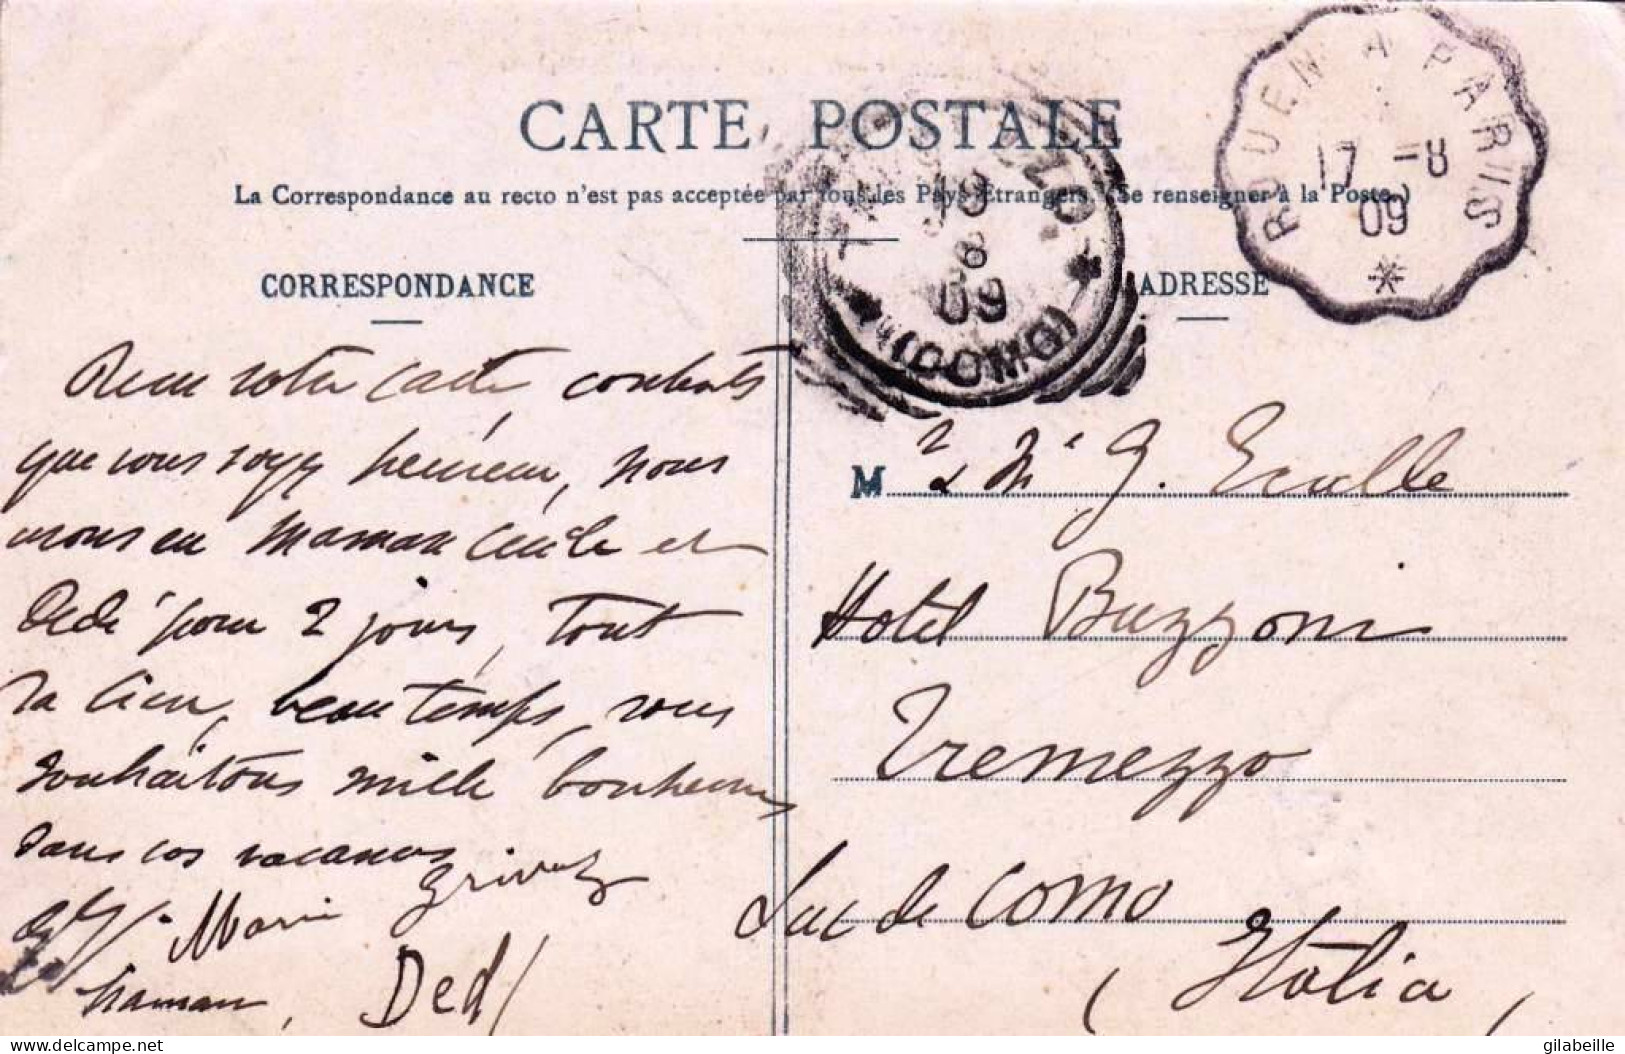 CARTE POSTALE
La Correspondance au recto n'est pas acceptée par tous les Pays Étrangers. (Se renseigner à la Poste.)
ROUEN A PARIS
17 -8
09
19
8
09
(COMO)
CORRESPONDANCE
Recu votre carte contents
que vous soyez heureux, nous
avons eu Maman Cécile et
Dédé pour 2 jours, tout
va bien, beau temps, vous
souhaitons mille bonheurs
dans vos vacances
Marie
Maman, Ded
ADRESSE
M r & Me G.
Hotel Buzzoni
Tremezzo
Lac de Como
(Italia)
delcampe.net
gilabeille